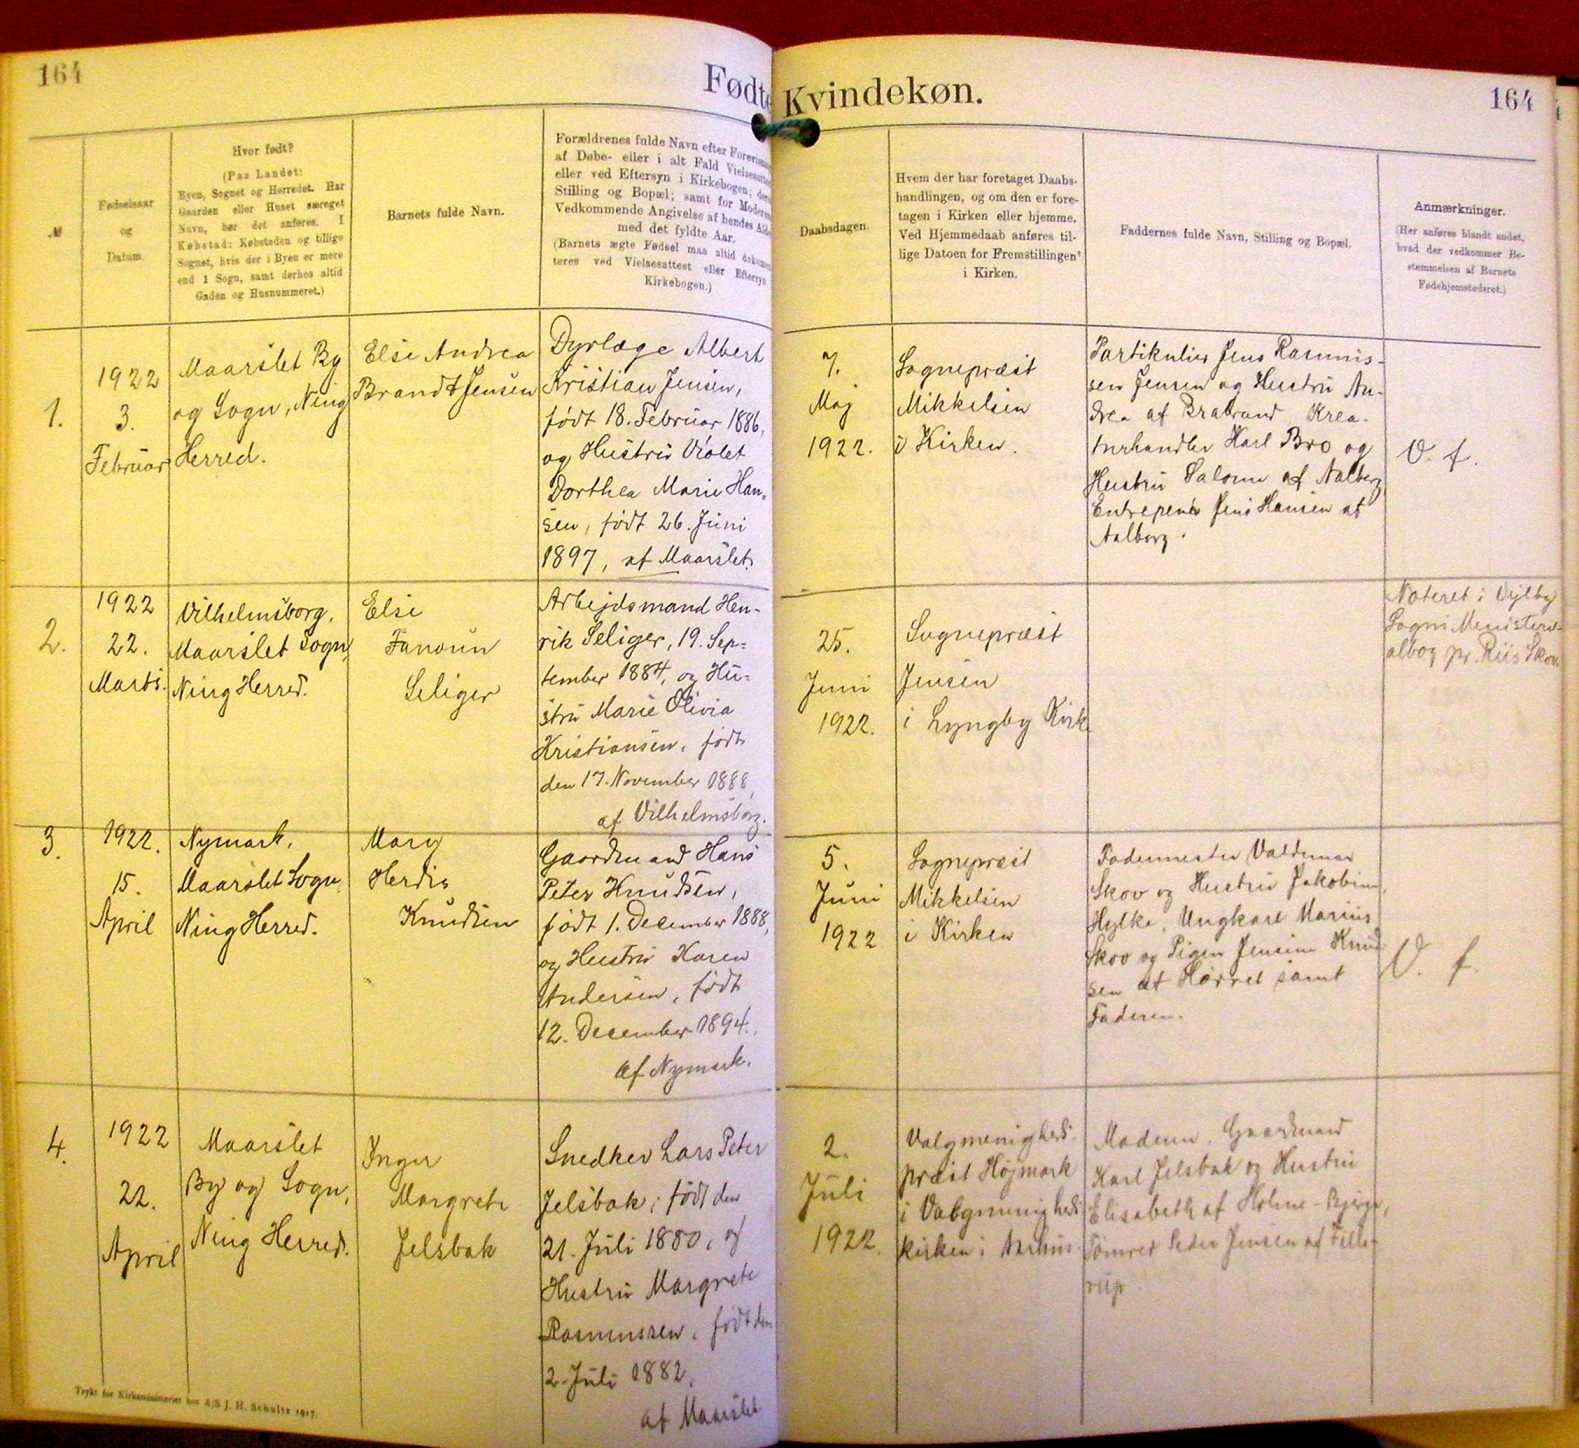 164
Fødte
Kvindekøn.
164
№
Fødselsaar
og
Datum.
Hvor født?
(Paa Landet:
Byen, Sognet og Herredet. Har
Gaarden eller Huset særeget
Navn, bør det anføres. I
Købstad: Købstaden og tillige
Sognet, hvis der i Byen er mere
end 1 Sogn, samt derhos altid
Gaden og Husnummeret.)
Barnets fulde Navn.
Forældrenes fulde Navn efter
af Døbe- eller i alt Fald
eller ved Eftersyn i Kirkebogen;
Stilling og Bopæl; samt for
Vedkommende Angivelse af hendes
med det fyldte Aar.
(Barnets ægte Fødsel maa altid
teres ved Vielsesattest eller Eftersyn
Kirkebogen.)
Daabsdagen.
Hvem der har foretaget Daabs-
handlingen, og om den er fore-
tagen i Kirken eller hjemme.
Ved Hjemmedaab anføres til-
lige Datoen for Fremstillingen
i Kirken.
Faddernes fulde Navn, Stilling og Bopæl.
Anmærkninger.
(Her anføres blandt andet,
hvad der vedkommer Be-
stemmelsen af Barnets
Fødehjemstederet.)
1.
1922
3.
Februar
Maarslet By
og Sogn, Ning
Herred.
Else Andrea
Brandt Jensen
Dyrlæge Albert
Kristian Jensen,
født 18. Februar 1886,
og Hustru Violet
Dorthea Marie Han-
sen, født 26. Juni
1897, af Maarslet.
7.
Maj
1922.
Sognepræst
Mikkelsen
i Kirken.
Partikulier Jens Rasmus-
sen Jensen og Hustru An-
drea af Brabrand Krea-
turhandler Karl Bro og
Hustru Salome af Aalborg
Entreprenør Jens Hansen af
Aalborg.
V. f.
2.
1922
22.
Marts.
Vilhelmsborg,
Maarslet Sogn,
Ning Herred.
Else
Fanoun
Seliger
Arbejdsmand Hen-
rik Seliger, 19. Sep-
tember 1884, og Hu-
stru Marie Olivia
Kristiansen, født
den 17. November 1888,
af Vilhelmsborg.
25.
Juni
1922.
Sognepræst
Jensen
i Lyngby Kirke
Noteret i Vejlby
Sogns Ministeri-
albog pr. Riis Skov
3.
1922.
15.
April
Nymark,
Maarslet Sogn,
Ning Herred.
Mary
Herdis
Knudsen
Gaardmand Hans
Peter Knudsen,
født 1. December 1888,
og Hustru Karen
Andersen, født
12. December 1894.,
af Nymark.
5.
Juni
1922
Sognepræst
Mikkelsen
i Kirken
Fodermester Valdemar
Skov og Hustru Jakobine,
Hylke, Ungkarl Marius
Skov og Pigen Jensine Knud-
sen af Hørret samt
Faderen.
V. f.
4.
1922
22.
April
Maarslet
By og Sogn,
Ning Herred.
Inger
Margrete
Jelsbak
Snedker Lars Peter
Jelsbak, født den
21. Juli 1880, og
Hustru Margrete
Rasmussen, født den
2. Juli 1882,
af Maarslet
2.
Juli
1922.
Valgmenigheds-
præst Højmark
i Valgmenigheds-
kirken i Aarhus.
Moderen, Gaardmand
Karl Jelsbak og Hustru
Elisabeth af Holme-Bjerge,
Tømrer Peder Jensen af Fille-
rup.
Trykt for Kirkeministeriet hos A/S J. H. Schultz 1917.